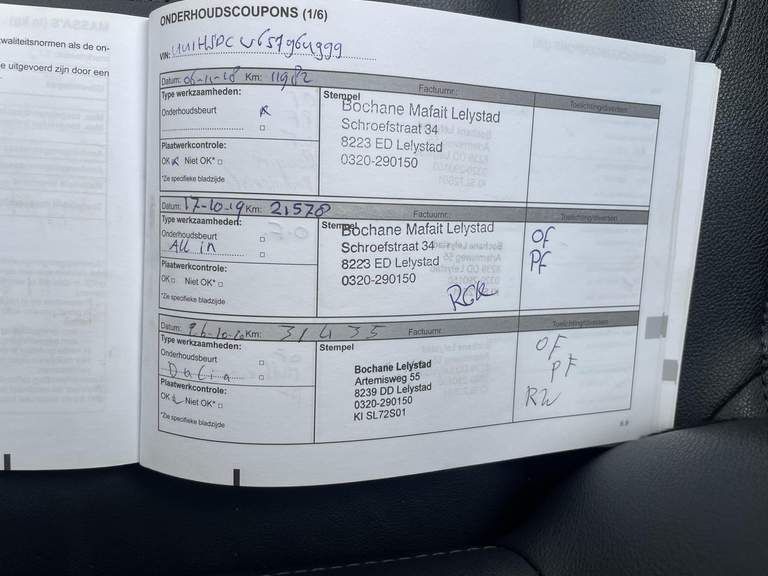 waliteitsnormen als de on-
e uitgevoerd zijn door een
ONDERHOUDSCOUPONS (1/6)
VIN:
Datum: 06-11-18 Km: 11982 Factuurnr.:
Type werkzaamheden:
Onderhoudsbeurt
Plaatwerkcontrole:
OK Niet OK*
*Zie specifieke bladzijde
Stempel
Bochane Mafait Lelystad
Schroefstraat 34
8223 ED Lelystad
0320-290150
Toelichting/diversen
Datum: 17-10-19 Km: 21578 Factuurnr.:
Type werkzaamheden:
Onderhoudsbeurt
All in
Plaatwerkcontrole:
OK Niet OK*
*Zie specifieke bladzijde
Stempel
Bochane Mafait Lelystad
Schroefstraat 34
8223 ED Lelystad
0320-290150
Toelichting/diversen
OF
PF
Datum: 26-10-20 Km: 31435 Factuurnr.:
Type werkzaamheden:
Onderhoudsbeurt
Plaatwerkcontrole:
OK Niet OK*
*Zie specifieke bladzijde
Stempel
Bochane Lelystad
Artemisweg 55
8239 DD Lelystad
0320-290150
KI SL72S01
Toelichting/diversen
OF
PF
RW
6.9